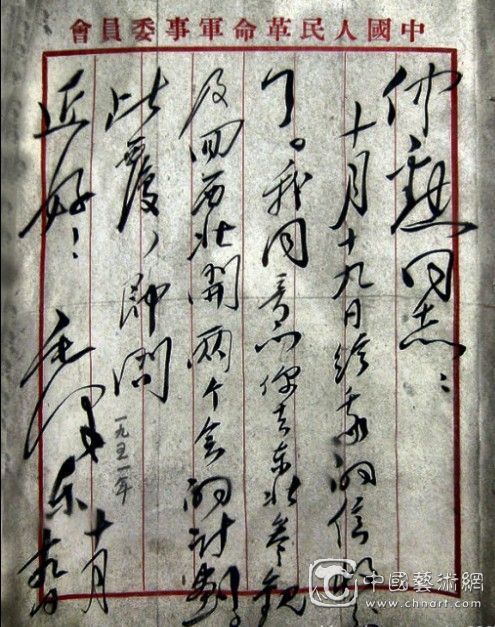 中國人民革命軍事委員會
仲勳同志：
十月十九日給我的信收到
了。我同意你去东北參觀
及回西北開兩个会的計劃。
此覆，即問
近好！
毛泽东
十月
一九五一年
中國藝術網
www.chnart.com